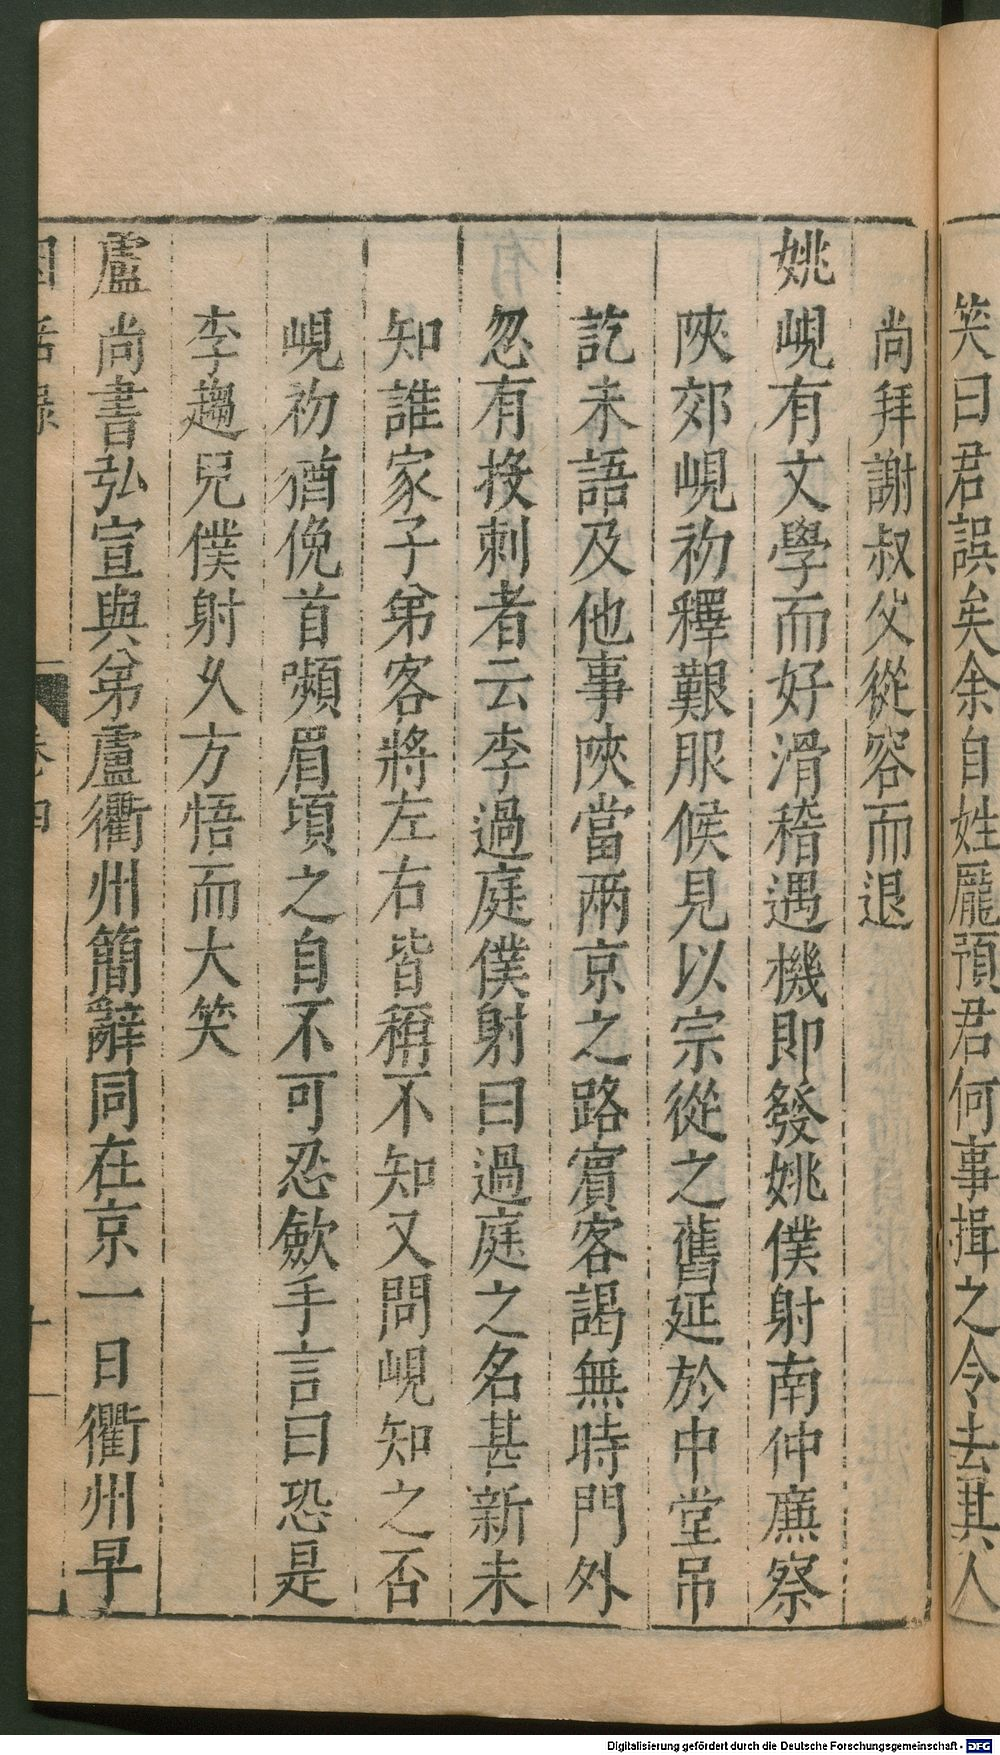 笑曰君誤矣余自姓龐預君何事揖之令去其人
尚拜謝叔父從容而退
姚峴有文學而好滑稽遇機即發姚僕射南仲廉察
陜郊峴初釋艱服候見以宗從之舊延於中堂吊
訖未語及他事陜當兩京之路賓客謁無時門外
忽有投刺者云李過庭僕射曰過庭之名甚新未
知誰家子弟客將左右皆稱不知又問峴知之否
峴初猶俛首嚬眉頃之自不可忍歛手言曰恐是
李趨兒僕射乆方悟而大笑
盧尚書弘宣與弟盧衢州簡辭同在京一日衢州早
因話錄 卷四 十一
Digitalisierung gefördert durch die Deutsche Forschungsgemeinschaft - DFG